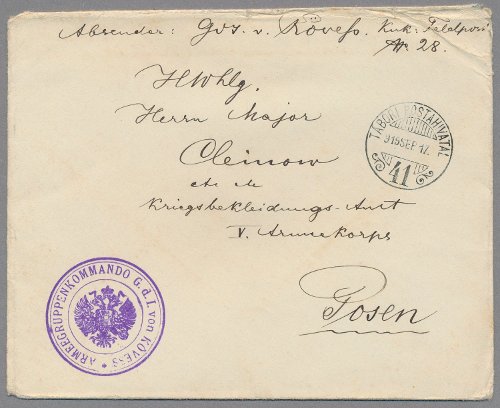 Absender: GdI. v. Kövess. Kuk. Feldpost
No 28.
HWhlg.
Herrn Major
Cleinow
etc etc
Kriegsbekleidungs-Amt
V. Armeekorps
Posen
TÁBORI POSTAHIVATAL
915 SEP 17
41
ARMEEGRUPPENKOMMANDO G.d.I. von KÖVESS *